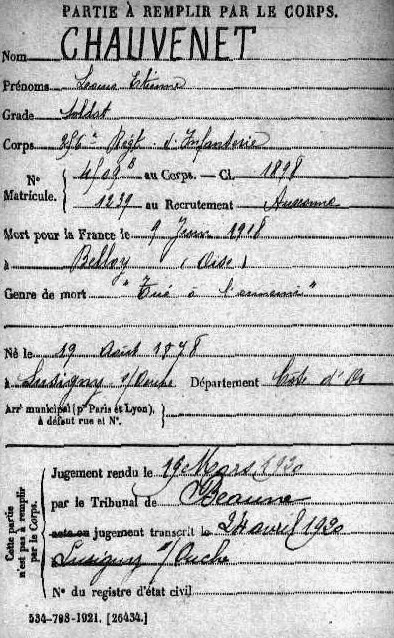 PARTIE À REMPLIR PAR LE CORPS.
Nom CHAUVENET
Prénoms Louis Etienne
Grade Soldat
Corps 256e Régt. d'Infanterie
N° Matricule. 4509 B au Corps. — Cl. 1898
1239 au Recrutement Auxonne
Mort pour la France le 9 Juin 1918
à Belloy (Oise)
Genre de mort "Tué à l'ennemi"
Né le 19 Août 1878
à Lusigny s/Ouche Département Côte d'Or
Arrt municipal (pr Paris et Lyon),
à défaut rue et N°.
Cette partie n'est pas à remplir par le Corps.
Jugement rendu le 19 Mars 1920
par le Tribunal de Beaune
acte ou jugement transcrit le 24 avril 1920
Lusigny s/Ouche
N° du registre d'état civil
534-708-1921. [26434.]